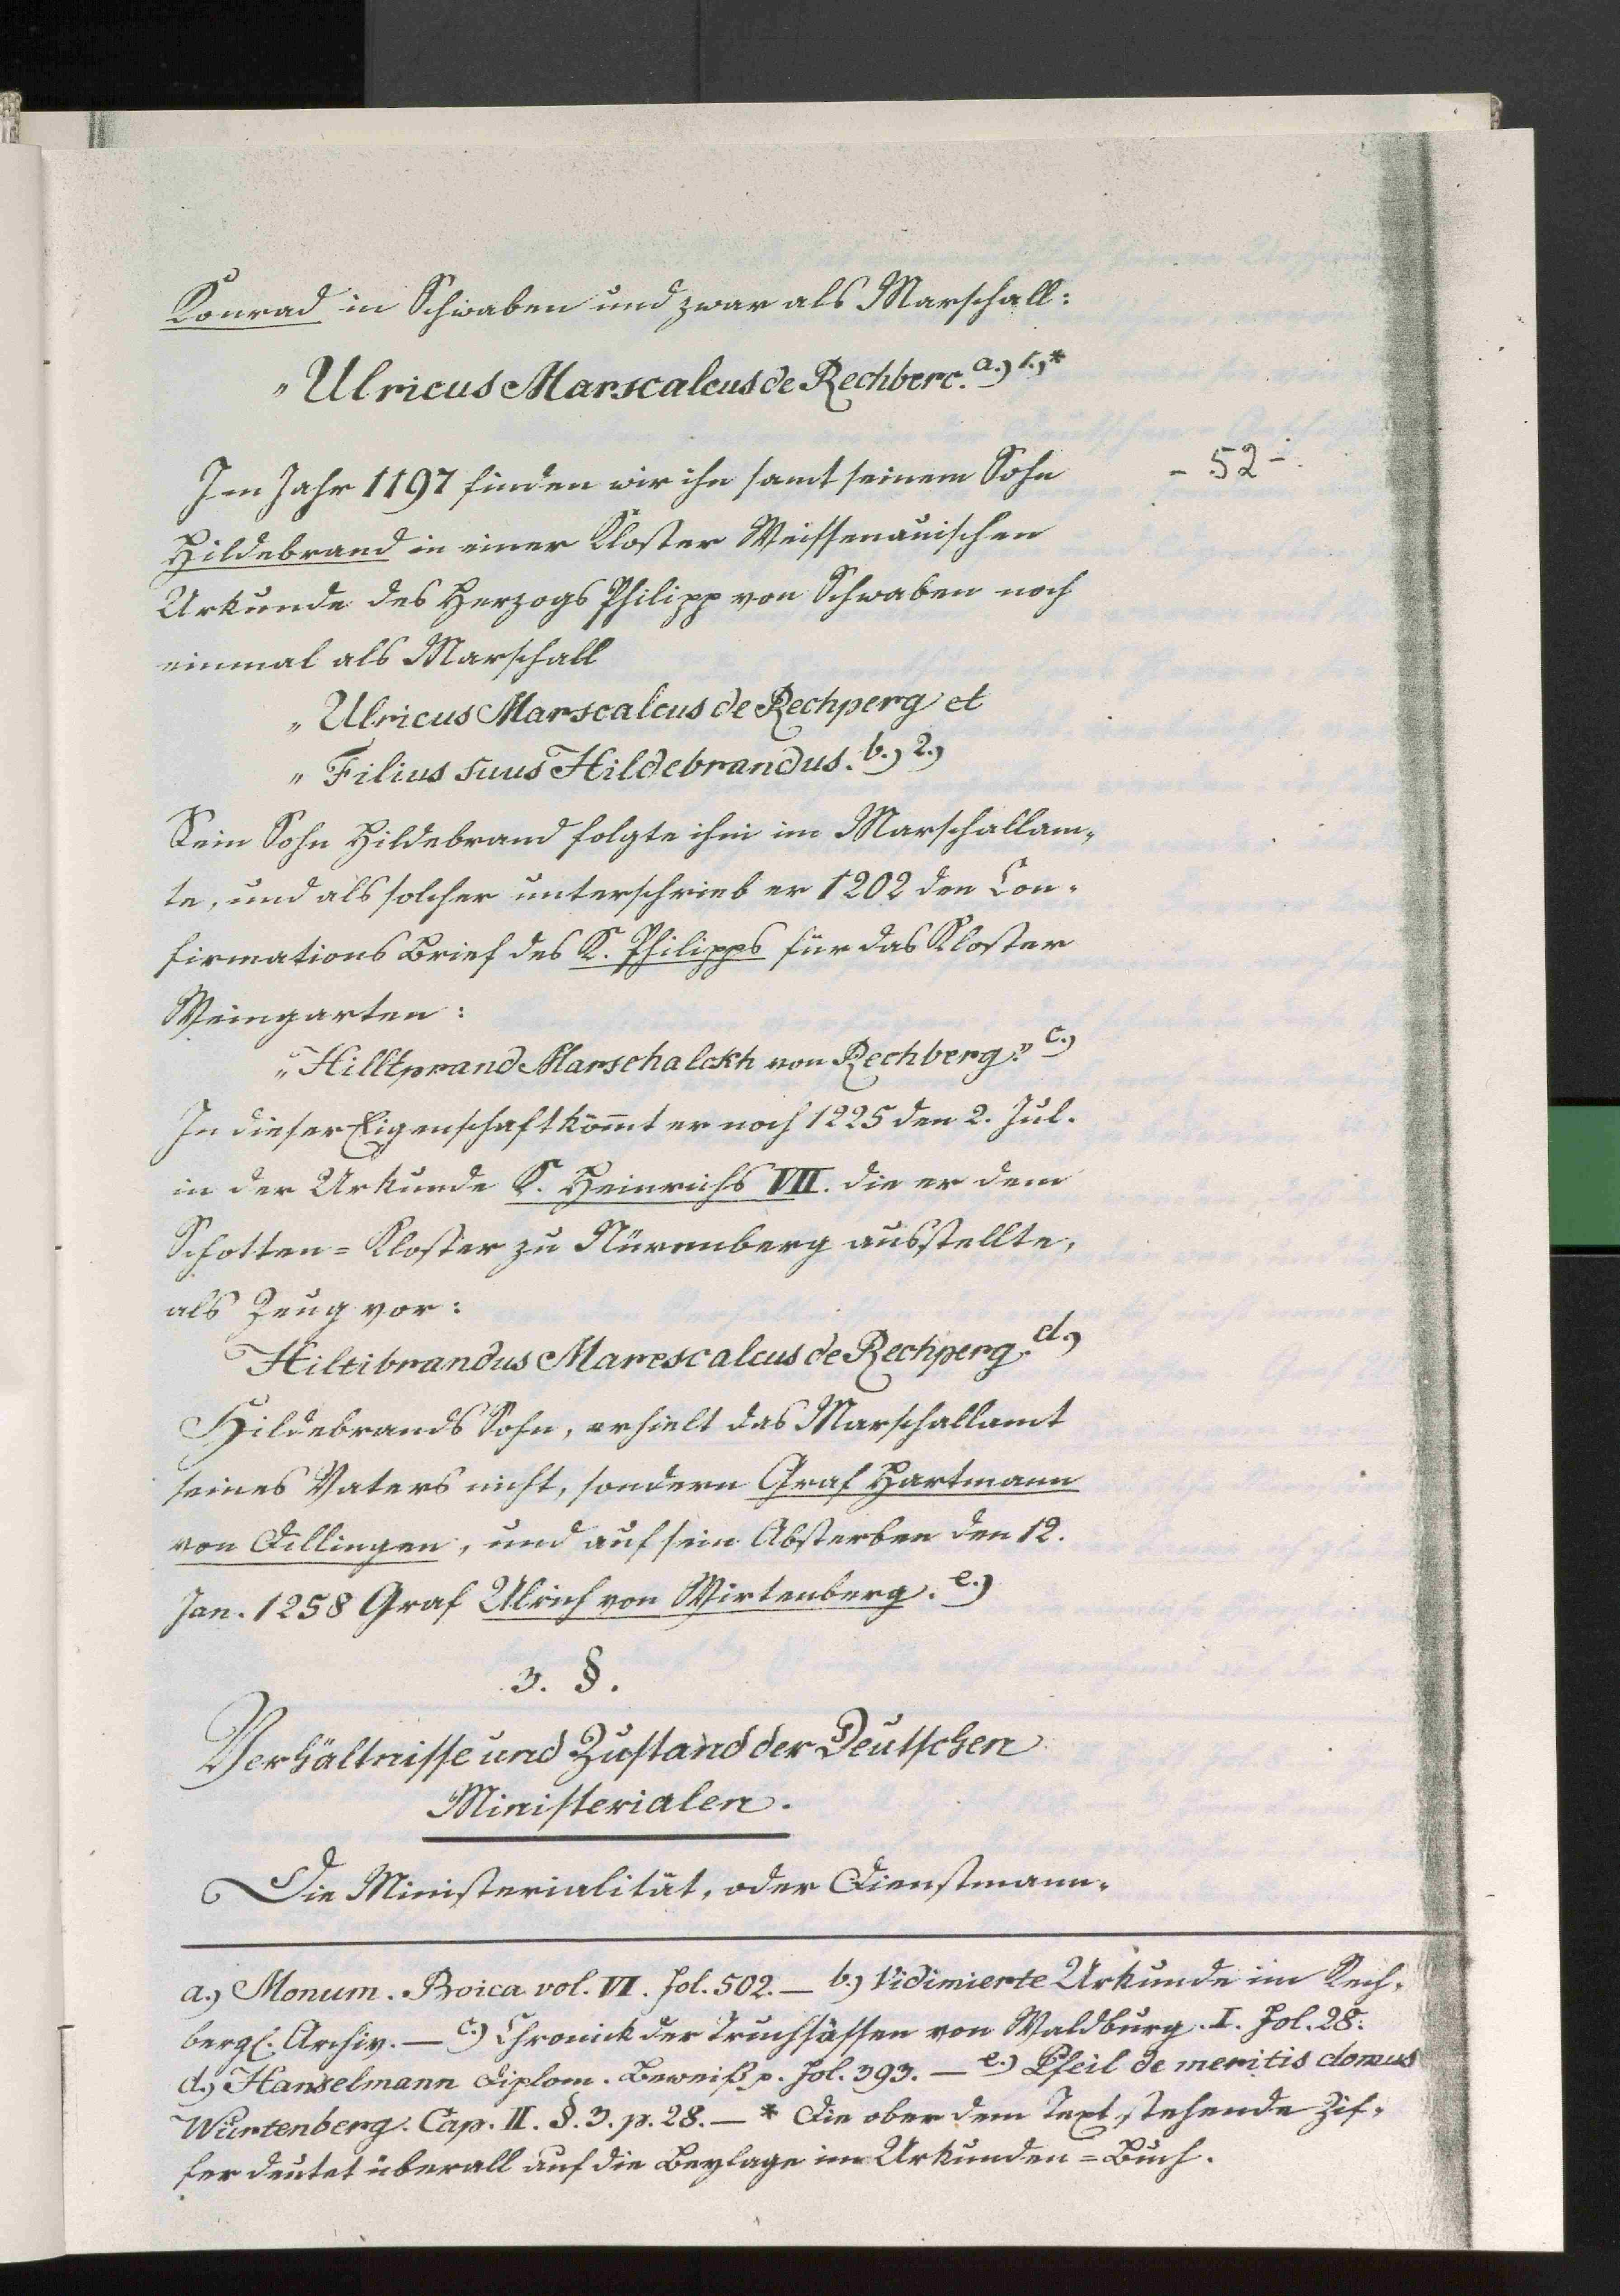 Konrad in Schwaben und zwar als Marschall:
„Ulricus Marscalcus de Rechberc. a.) 1.) *
- 52 -
Im Jahr 1197 finden wir ihn samt seinem Sohn
Hildebrand in einer Kloster Weissenauischen
Urkunde des Herzogs Philipp von Schwaben noch
einmal als Marschall
„Ulricus Marscalcus de Rechperg et
„Filius suus Hildebrandus. b.) 2.)
Sein Sohn Hildebrand folgte ihm im Marschallam-
te, und als solcher unterschrieb er 1202 den Con-
firmations Brief des K. Philipps für das Kloster
Weingarten:
„Hilltprand Marschalckh von Rechberg." c.)
In dieser Eigenschaft kom̄t er noch 1225 den 2. Jul.
in der Urkunde K. Heinrichs VII. die er dem
Schotten=Kloster zu Nürenberg ausstellte,
als Zeug vor:
Hiltibrandus Marescalcus de Rechperg. d.)
Hildebrands Sohn, erhielt das Marschallamt
seines Vaters nicht, sondern Graf Hartmann
von Dillingen, und auf sein Absterben den 12.
Jan. 1258 Graf Ulrich von Wirtenberg. e.)
3. §.
Verhältnisse und Zustand der Deutschen
Ministerialen.
Die Ministerialität, oder Dienstmann-
a.) Monum. Boica vol. VI. fol. 502. — b.) Vidimierte Urkunde im Rech-
bergl. Archiv. — c.) Chronick der Truchsässen von Waldburg. I. Fol. 28.
d.) Hanselmann Diplom. Beweiß p. fol. 393. — e.) Pfeil de meritis domus
Würtenberg. Cap. II. §. 3. p. 28. — * Die ober dem Text stehende Zif-
fer deutet überall auf die Beylage im Urkunden=Buch.